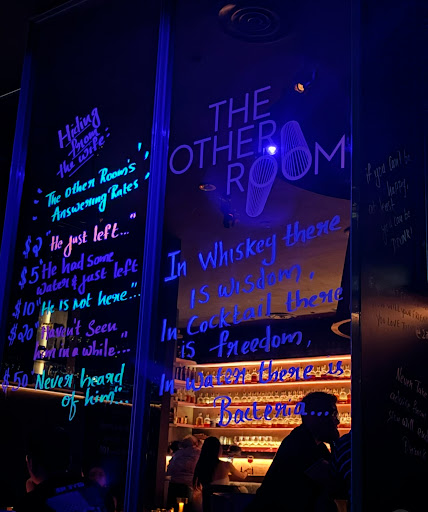 Hiding
from
the wife:
"The other Room's
Answering Rates"
$2 "He just left..."
$5 "He had some
water & just left
$10 "He is not here..."
$20 "Haven't Seen
him in a while..."
$50 Never heard
of him"...
THE
OTHER
ROOM
In Whiskey there
is wisdom,
In Cocktail there
is freedom,
In water there is
Bacteria...
If you can't be
happy,
at least
you can be
drunk!